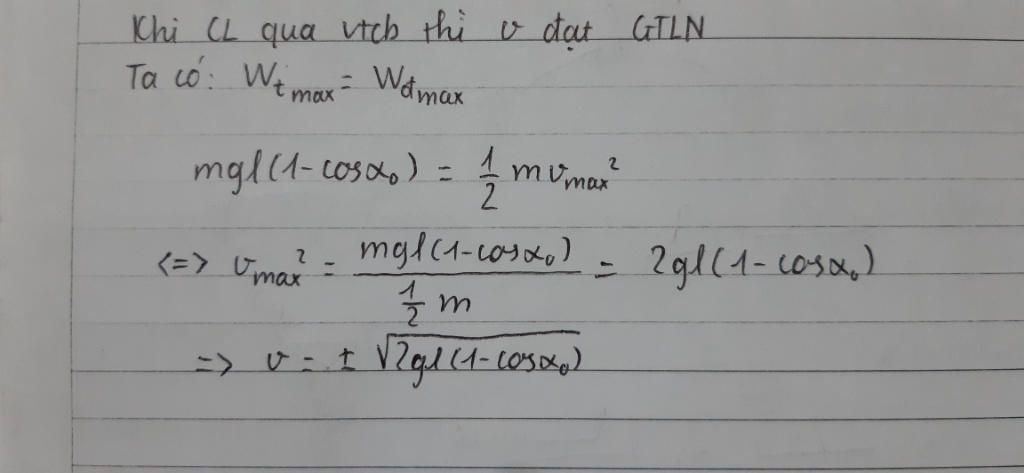 Khi CL qua vtcb thì v đạt GTLN
Ta có: Wt max = Wđmax
mgl(1-cosα₀) = 1/2 m vmax²
<=> vmax² = mgl(1-cosα₀) / (1/2 m) = 2gl(1-cosα₀)
=> v = ± √2gl(1-cosα₀)